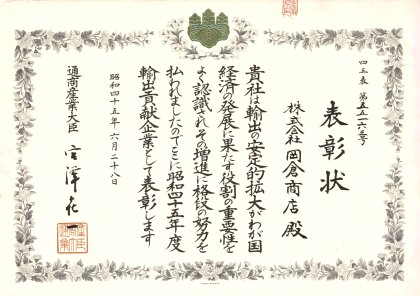 四五表 第五五一六三号
表彰状
株式会社 岡倉商店 殿
貴社は輸出の安定的拡大がわが国
経済の発展に果たす役割の重要性を
よく認識されその増進に格段の努力を
払われましたのでここに昭和四十五年度
輸出貢献企業として表彰します
昭和四十五年六月二十八日
通商産業大臣 宮澤喜一